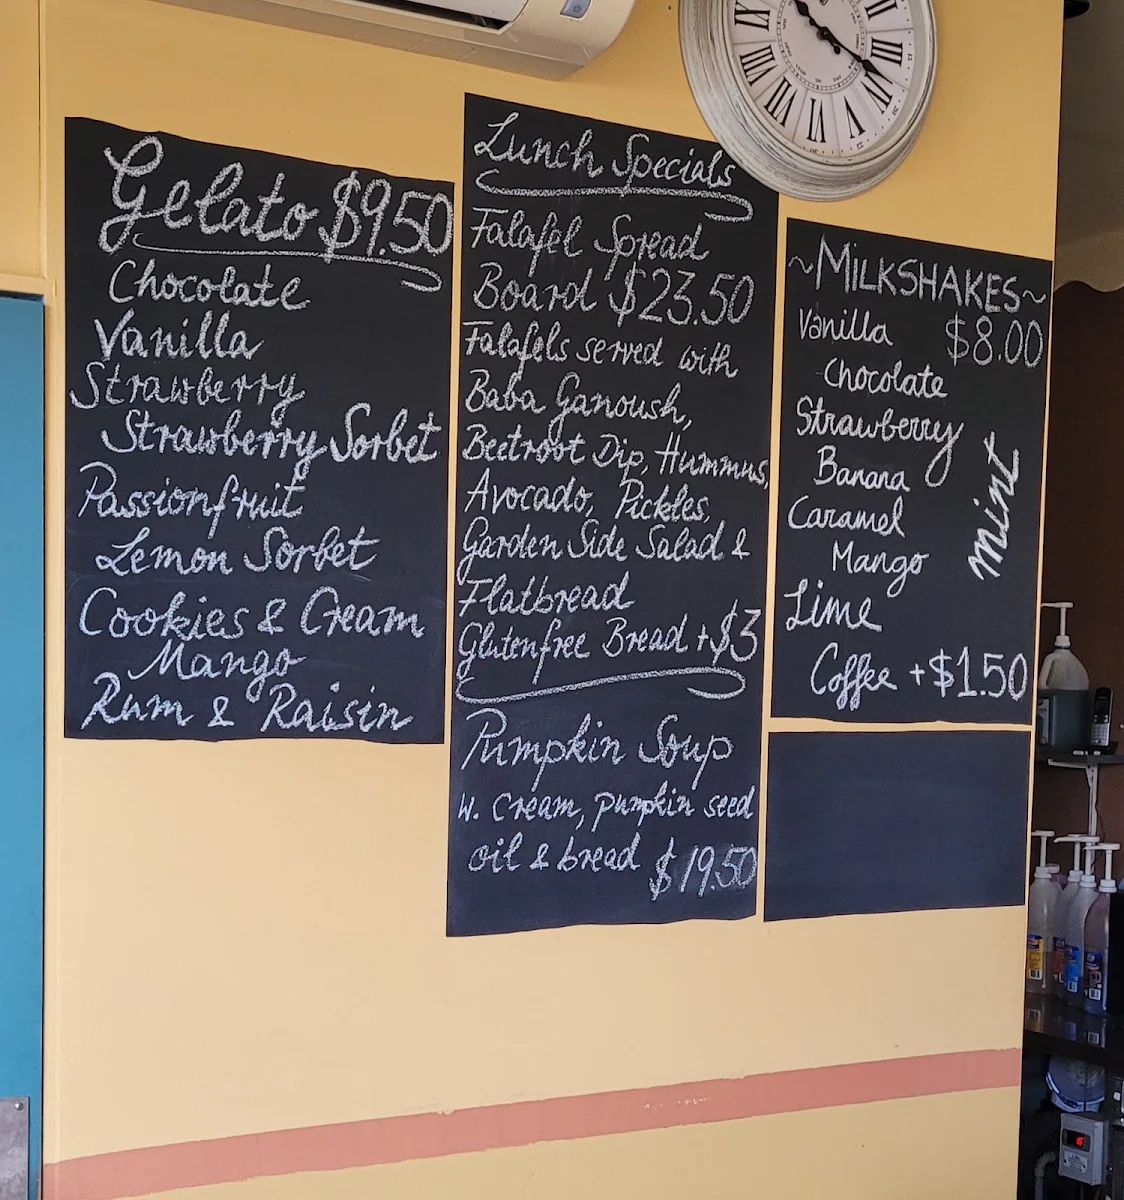 Gelato $9.50
Chocolate
Vanilla
Strawberry
Strawberry Sorbet
Passionfruit
Lemon Sorbet
Cookies & Cream
Mango
Rum & Raisin
Lunch Specials
Falafel Spread
Board $23.50
Falafels served with
Baba Ganoush,
Beetroot Dip, Hummus,
Avocado, Pickles,
Garden Side Salad &
Flatbread
Glutenfree Bread +$3
Pumpkin Soup
w. Cream, pumpkin seed
oil & bread $19.50
~MILKSHAKES~
Vanilla $8.00
Chocolate
Strawberry
Banana
Caramel
Mango
Lime
mint
Coffee +$1.50
III
IIII
V
VI
VII
VIII
IX